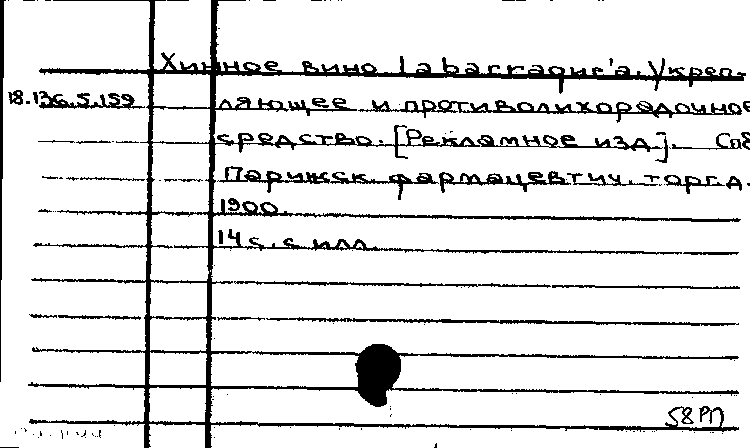 Хинное вино Labarraque'a. Укреп-
18.136.5.159 ляющее и противолихорадочное
средство. [Рекламное изд]. Спб
Парижск. фармацевтич. торг.д.
1900.
14 с. с илл.
58РП